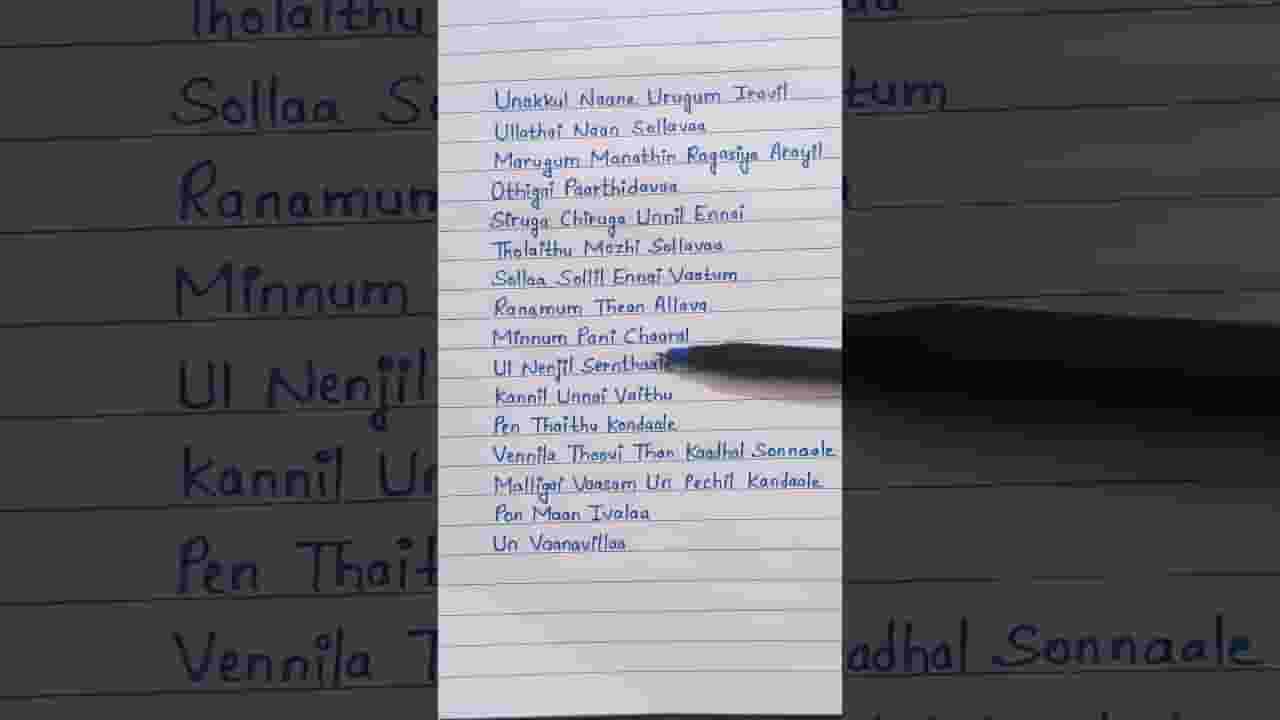 Unakkul Naane Urugum Iravil
Ullathai Naan Sollavaa
Marugum Manathin Ragasiya Arayil
Othigai Paarthidavaa
Siruga Chiruga Unnil Ennai
Tholaithu Mozhi Sollavaa
Sollaa Sollil Ennai Vaatum
Ranamum Thean Allava
Minnum Pani Chaaral
Ul Nenjil Sernthaale
Kannil Unnai Vaithu
Pen Thaithu Kondaale
Vennila Thaovi Than Kaadhal Sonnaale
Malligai Vaasam Un Pechil Kandaale
Pon Maan Ivalaa
Un Vaanavillaa